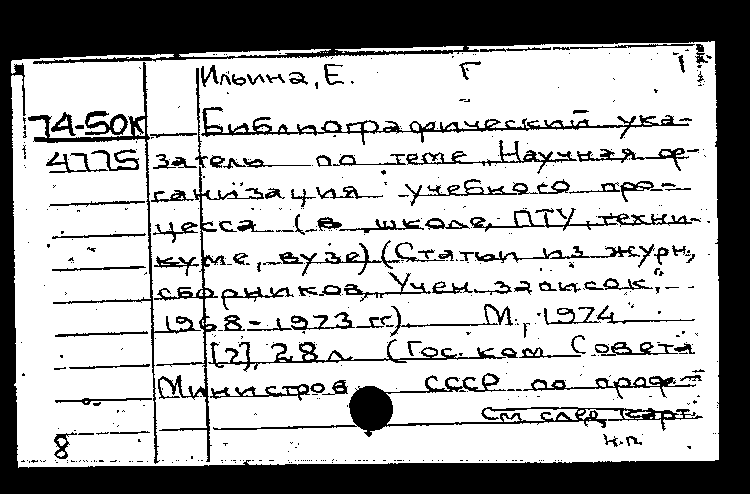 Ильина, Е. Г
74-50К Библиографический ука-
4775 затель по теме „Научная ор-
ганизация учебного про-
цесса (в школе, ПТУ, техни-
куме, вузе) (Статьи из журн.,
сборников, „Учен. записок“,
1968-1973 гг). М., 1974.
[2], 28 л. (Гос. ком. Совета
Министров СССР по проф.-т
см след. карт.
8 н.п.